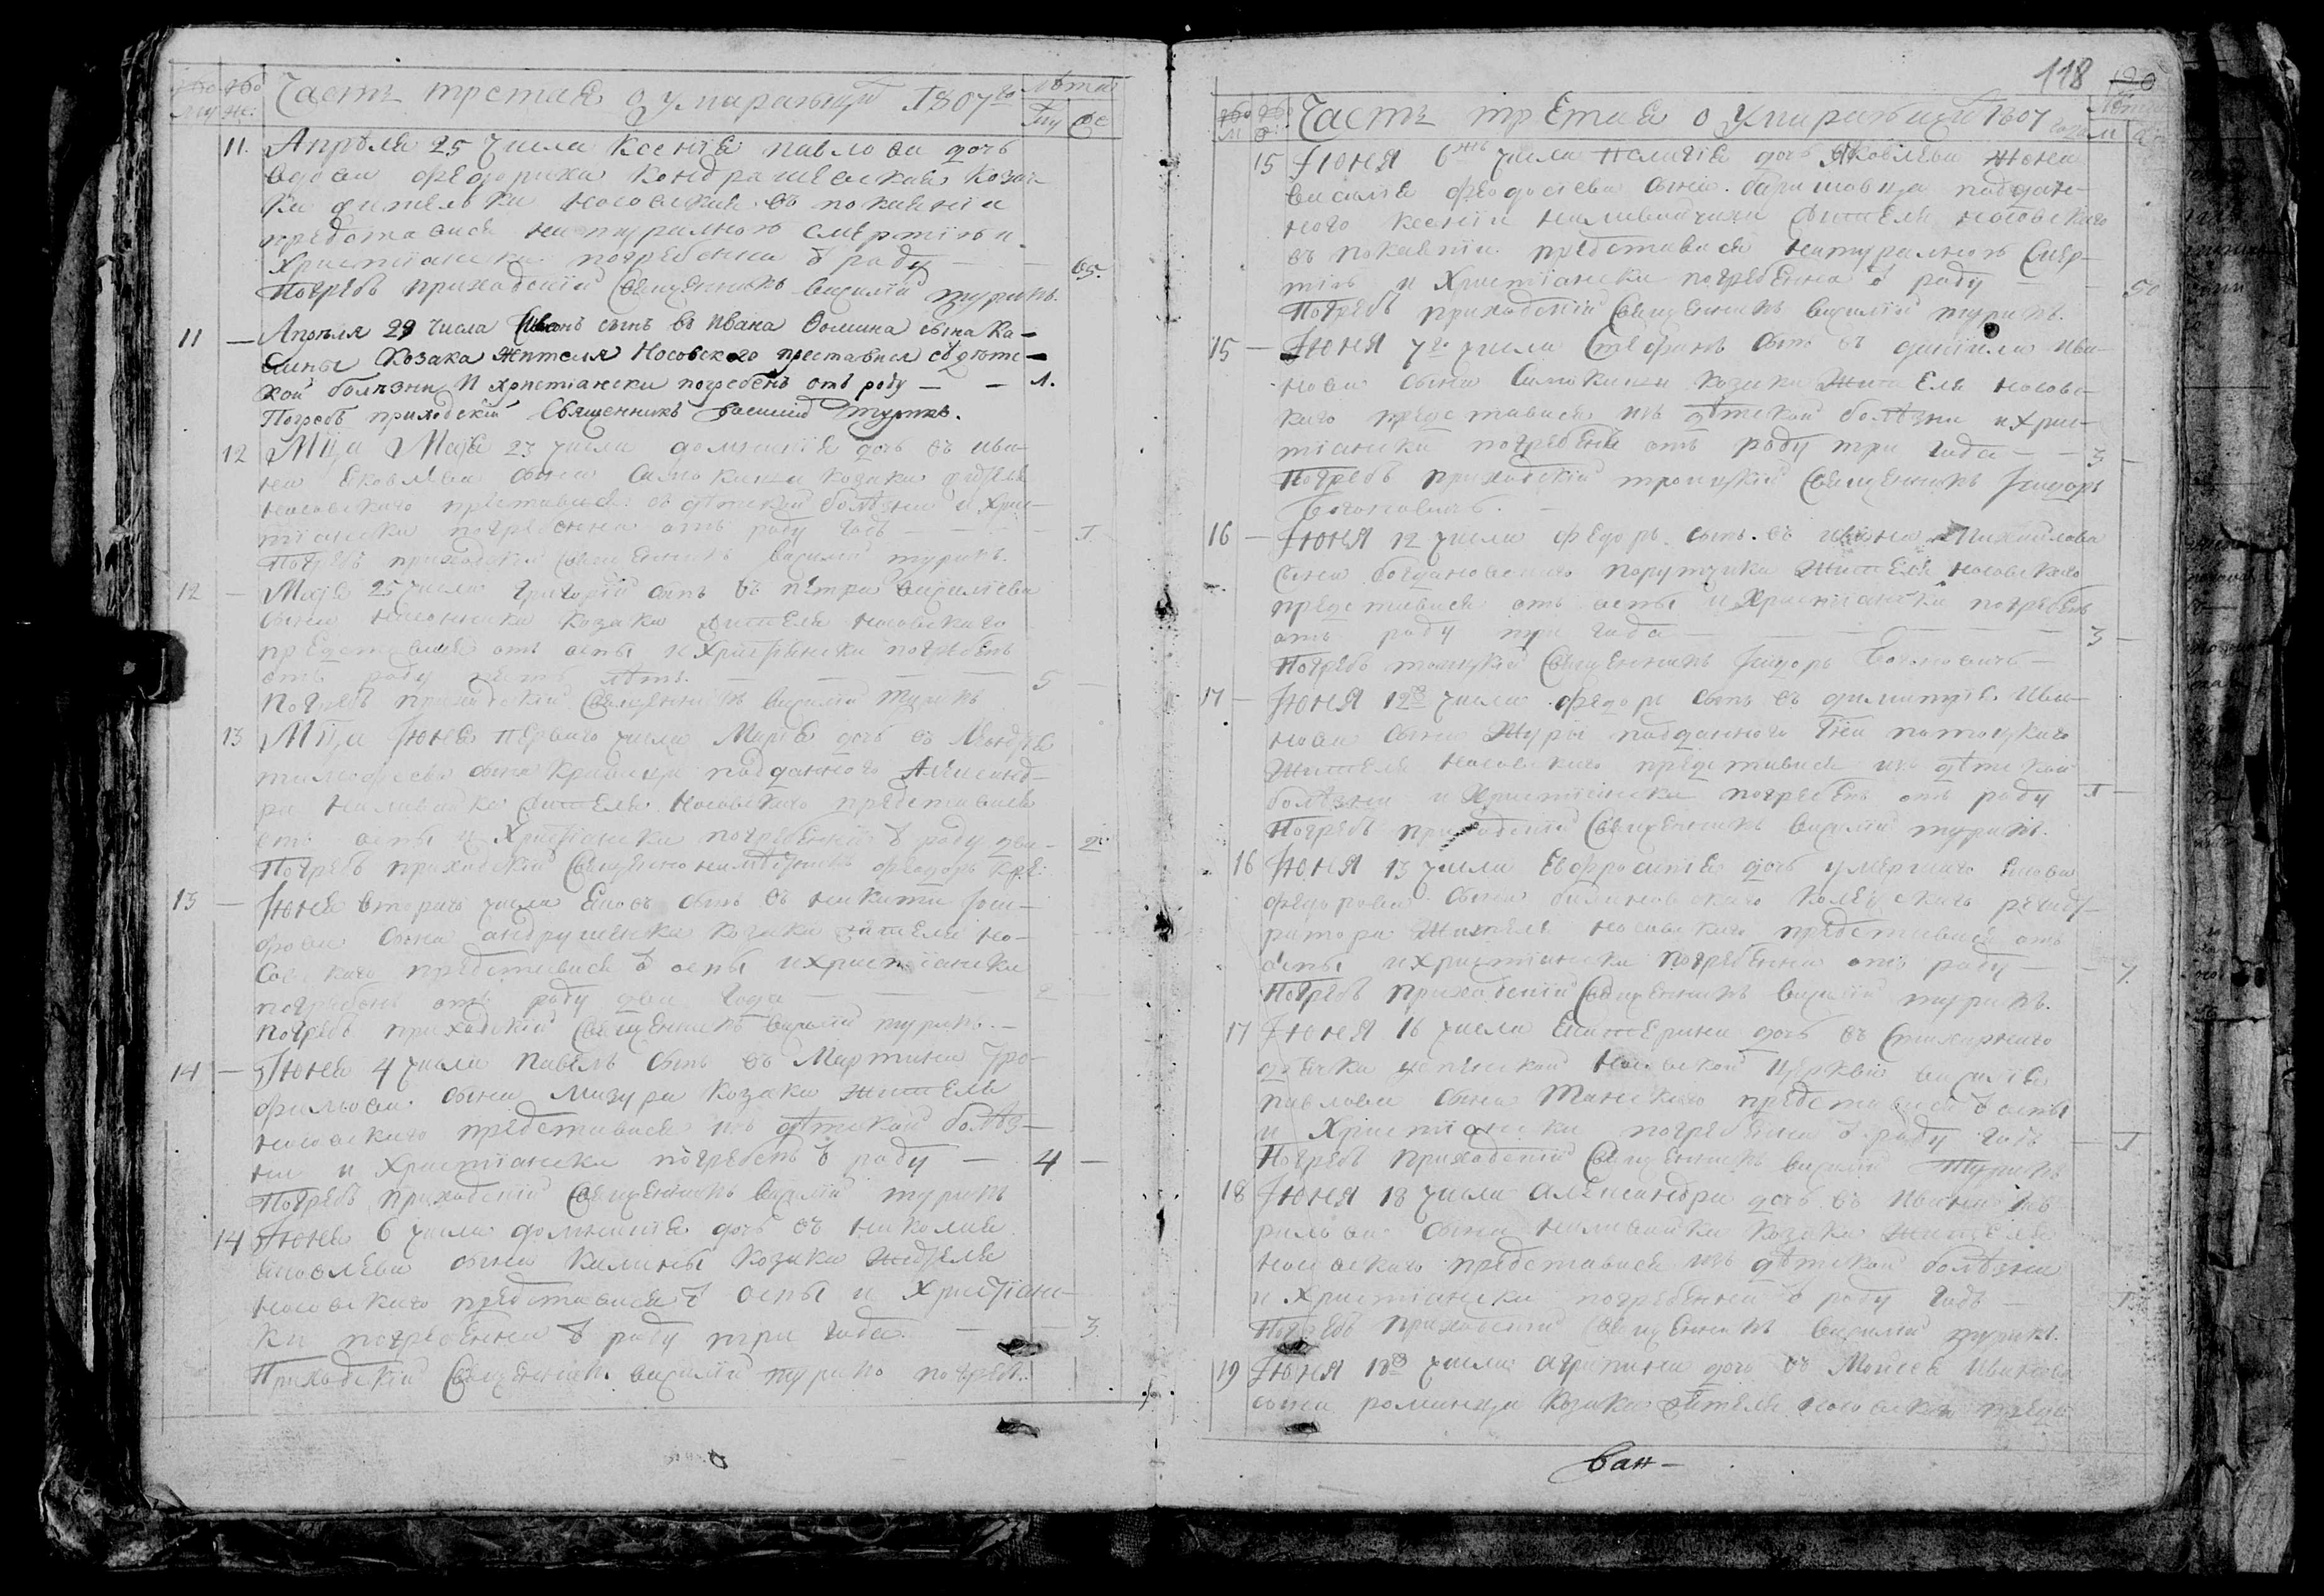 Часть третая о умирающи 1807го
Лѣта
Му Же
11. Апрѣля 25 числа Ксенія павлова дочь
вдова федорика Кондрашевская Козач-
ка жителька носовская въ покаяніи
представися натуралною смертію и
Христіански погребенна ѿ роду — 65.
Погребъ приходскій Священникъ василій турикъ.
11 — Апрѣля 29 числа Иванъ сынъ въ Ивана Фомина сына Ка-
лины Козака жителя Носовского преставися ѿ дѣтс-
кой болѣзни И христіански погребенъ отъ роду — — 1.
Погребъ приходскій Священникъ василій турикъ.
12 Мца Маія 23 числа домникія дочь въ ива-
на Яковлева сына Самокиши козака жителя
носовского преставися ѿ дѣтской болѣзни и Хрис-
тіански погребенна отъ роду годъ — 1.
Погребъ приходскій священникъ василій турикъ.
12 — Маія 25 числа Григорій сынъ въ петра василіева
сына козака жителя носовского
представися отъ оспы и Христіански погребенъ
отъ роду пять лѣтъ. — 5 —
Погребъ приходскій Священникъ василій турикъ
13 Мца Іюня перваго числа Марія дочь въ
тимофеева сына кривицы подданного Александ-
ра наливайка жителя носовского представися
отъ оспы и Христіански погребенна ѿ роду два — 2.
Погребъ приходскій Священнонамѣстникъ федоръ
13 — Іюня втораго числа Яковъ сынъ въ никити Іоси-
фова сына андрушенка козака жителя но-
совского представися ѿ оспы и христіански
погребенъ отъ роду два года — 2
погребъ приходскій Священникъ василій турикъ. —
14 — Іюня 4 числа павелъ сынъ въ Мартина тро-
фимова сына мизури козака жителя
носовского представися изъ дѣтской болѣз-
ни и Христіански погребенъ ѿ роду — 4 —
Погребъ приходскій Священникъ василій турикъ
14 Іюня 6 числа домникія дочь въ николая
Яковлева сына калины козака жителя
носовского представися ѿ оспы и Христіанс-
ки погребенна ѿ роду три года. — 3.
Приходскій Священникъ василій турикъ погребъ.
118
Часть третая о умирающи 1807 года
15 Іюня 6 числа палагія дочь Яковлева жена
василія феодосіева сына баришовца поддан-
ного ксеніи наливайчихи жителя носовского
въ покаяніи представися натуралною Смер-
тію и Христіански погребенна ѿ роду — 50
Погребъ приходскій Священникъ василій турикъ.
15 — Іюня 7го числа Стефанъ сынъ въ даніила ива-
нова сына Самокиши козака жителя носовс-
кого представися изъ дѣтской болѣзни и хрис-
тіански погребенъ отъ роду три года — 3 —
Погребъ приходскій троицкій Священникъ Ісидоръ
16 — Іюня 12 числа федоръ сынъ въ ивана Михайлова
сына богдановского порутчика жителя носовского
представися отъ оспы и Христіански погребенъ
отъ роду три года — 3 —
Погребъ троицкій Священникъ Ісидоръ
17 — Іюня 12го числа федоръ сынъ въ димитрія ива-
нова сына Журы подданного Гна потоцкаго
жителя носовского представися изъ дѣтской
болѣзни и Христіански погребенъ отъ роду 1 —
Погребъ приходскій Священникъ василій турикъ.
16 Іюня 13 числа Евфросинія дочь умершаго Якова
федорова сына билиновского колежского регист-
ратора жителя носовского представися отъ
оспы и христіански погребенна отъ роду — 7.
Погребъ приходскій Священникъ василій турикъ.
17 Іюня 16 числа Екатерина дочь въ Стихарнаго
дячка успенской носовской церкви василія
павлова сына Танского представися ѿ оспы
и Христіански погребенна ѿ роду годъ — 1
Погребъ приходскій Священникъ василій турикъ
18 Іюня 18 числа Александра дочь въ ивана гав-
рилова сына наливайка козака жителя
носовского представися изъ дѣтской болѣзни
и Христіански погребенна ѿ роду годъ — 1.
Погребъ приходскій Священникъ василій турикъ.
19 Іюня 18го числа агрипина дочь въ Мойсея иванова
сына романца козака жителя носовского предс-